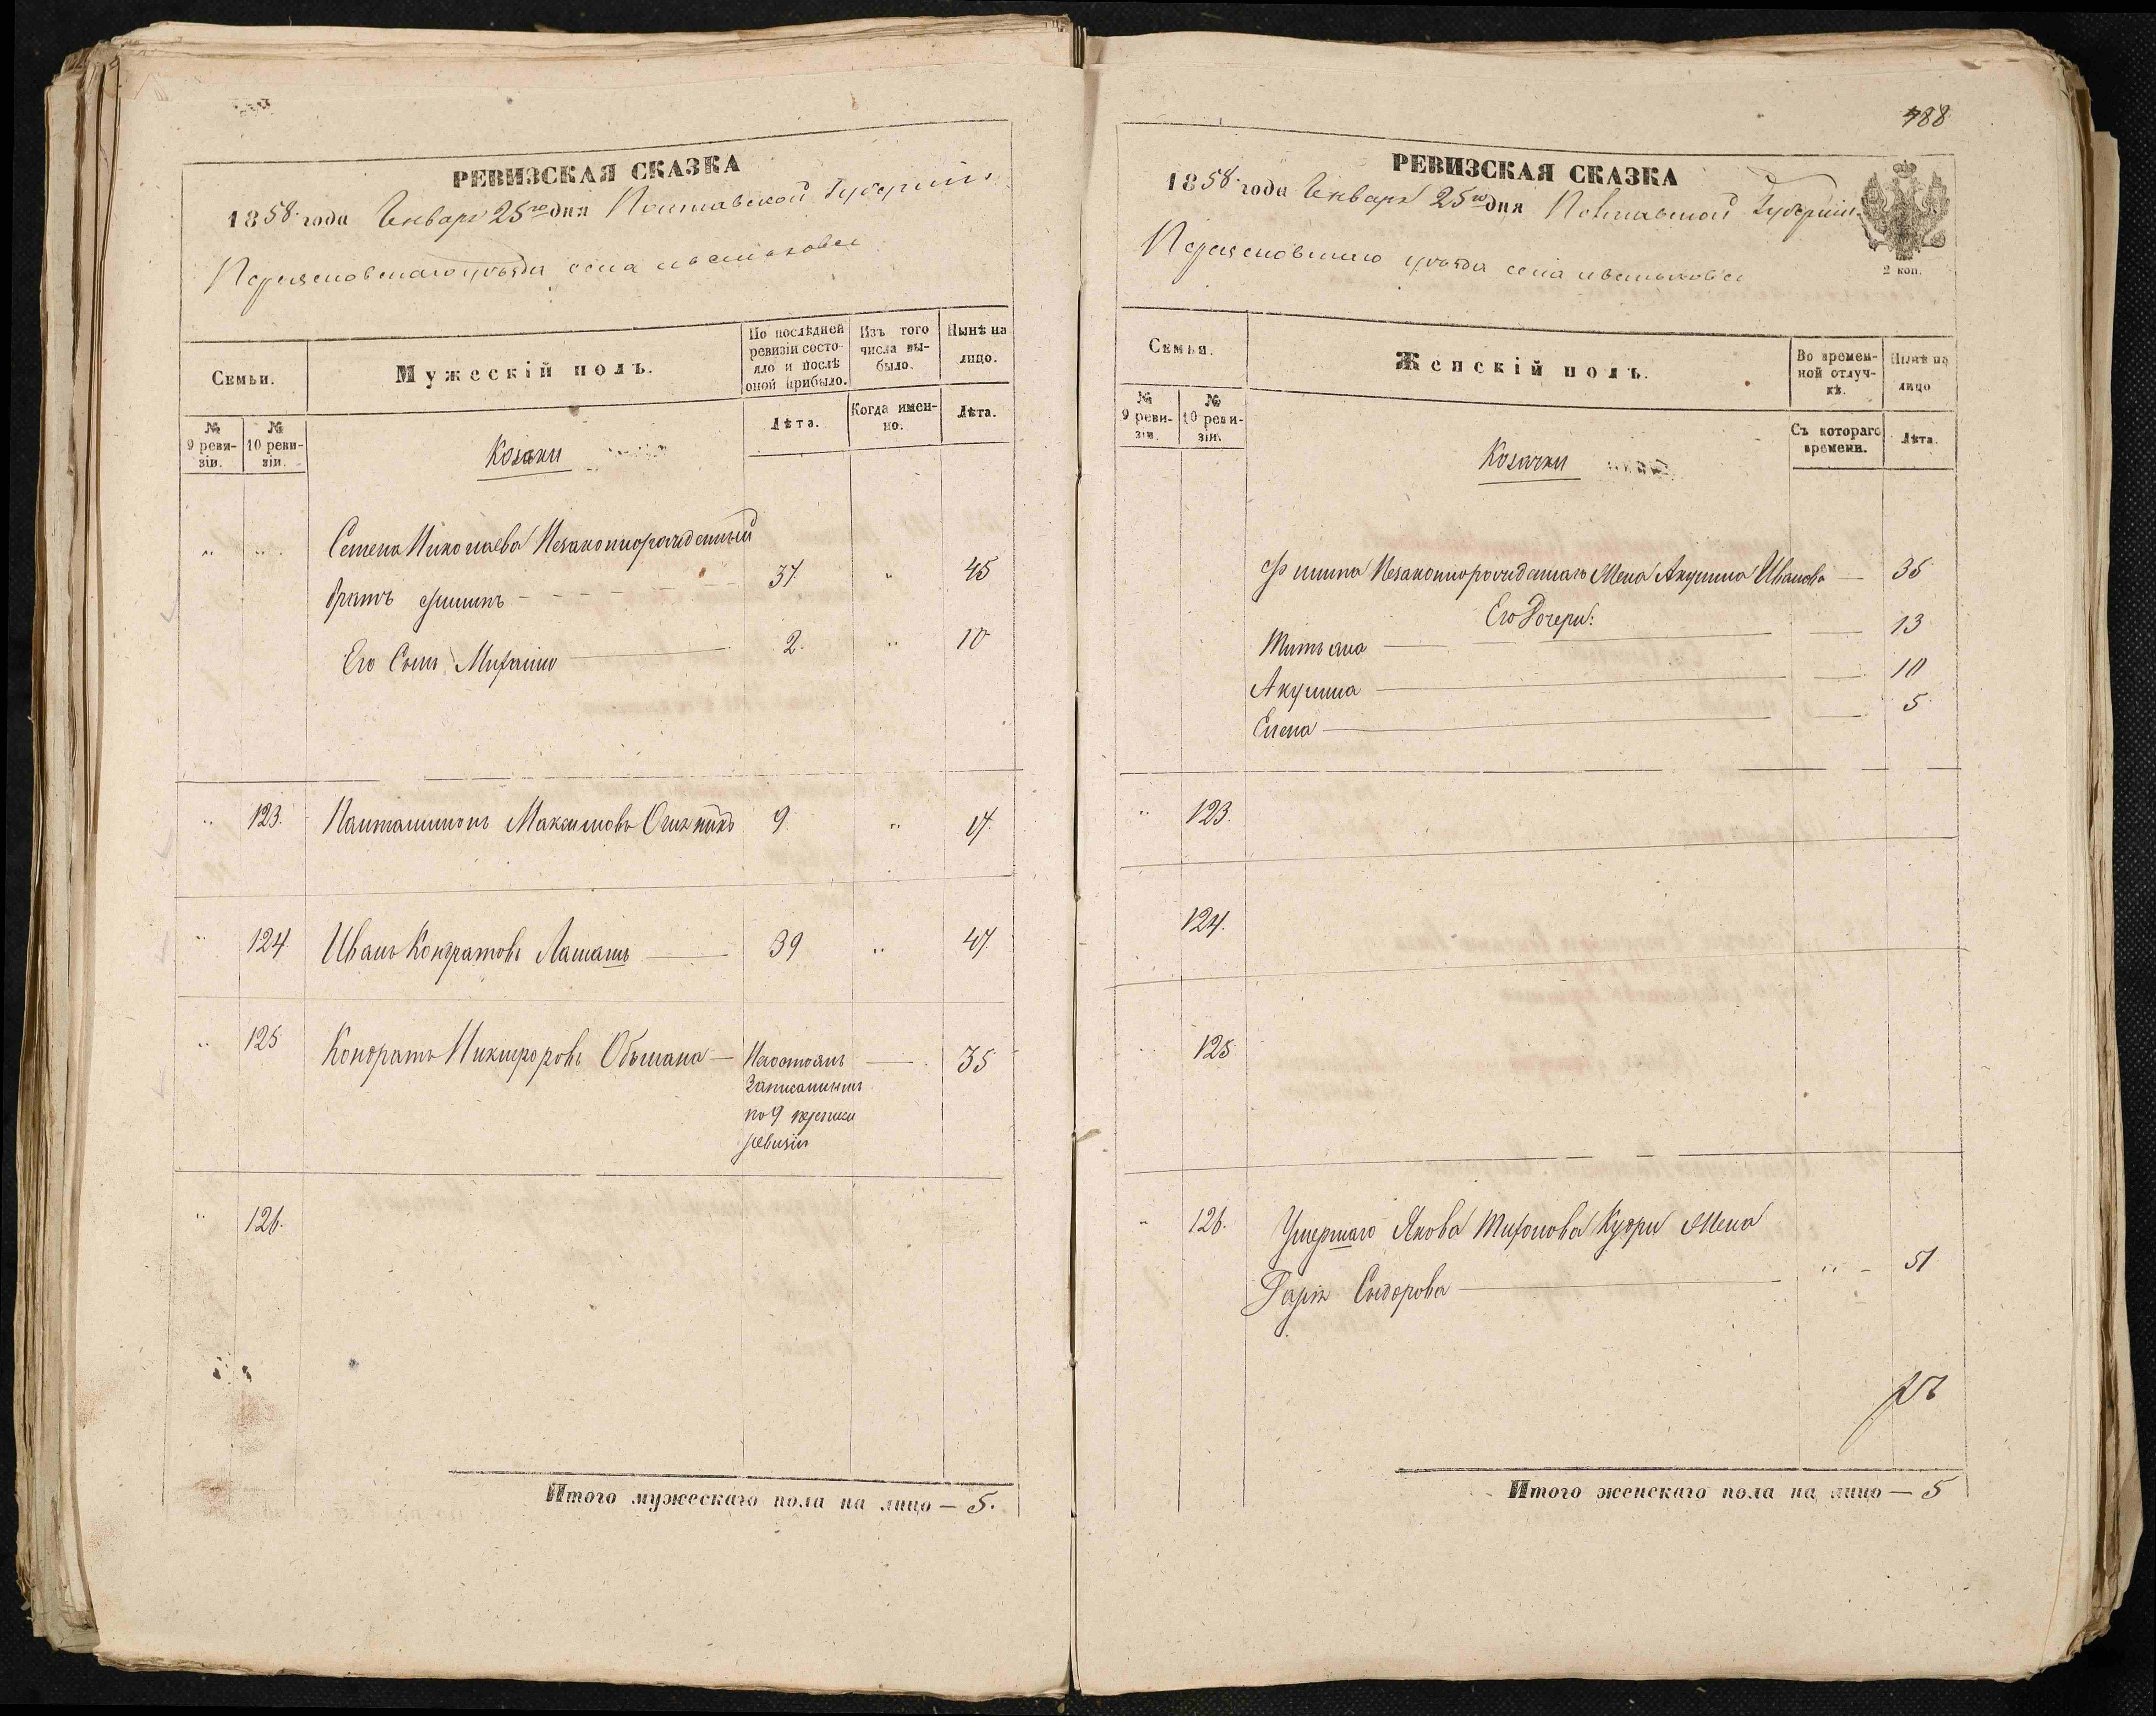 РЕВИЗСКАЯ СКАЗКА
1858 года Генваря 25го дня Полтавской Губерніи
Переясловскаго уѣзда села
Семьи.
Мужескій полъ.
По послѣдней ревизіи состояло и послѣ оной прибыло.
Изъ того числа выбыло.
Нынѣ на лицо.
№ 9 ревизіи.
№ 10 ревизіи.
Козаки
Лѣта.
Когда именно.
Лѣта.
" " Семена Николаева Незаконнорожденный
братъ Филипъ 37. " 45
Его Сынъ Михаилъ 2. " 10
" 123. Панталимонъ Максимовъ 9 " 17.
" 124 Иванъ Кондратовъ 39 " 47
" 125 Кондратъ Никифоровъ 35
Записаннымъ
по 9
ревизіи
" 126.
Итого мужескаго пола на лицо — 5.
788
РЕВИЗСКАЯ СКАЗКА
1858 года Генваря 25го дня Полтавской Губерніи
2 коп.
Переясловскаго уѣзда села
Семья.
Женскій полъ.
Во временной отлучкѣ.
Нынѣ на лицо
№ 9 ревизіи.
№ 10 ревизіи.
Козачки
Съ котораго времени.
Лѣта.
Филипа Незаконнорожденнаго Жена Акулина Иванова 35
Его Дочери:
Татьяна 13
Акулина 10
Елена 5
" 123.
124.
125
" 126. Умершаго Якова Тихонова Кудри Жена
Дарія Сидорова " 51
Итого женскаго пола на лицо — 5